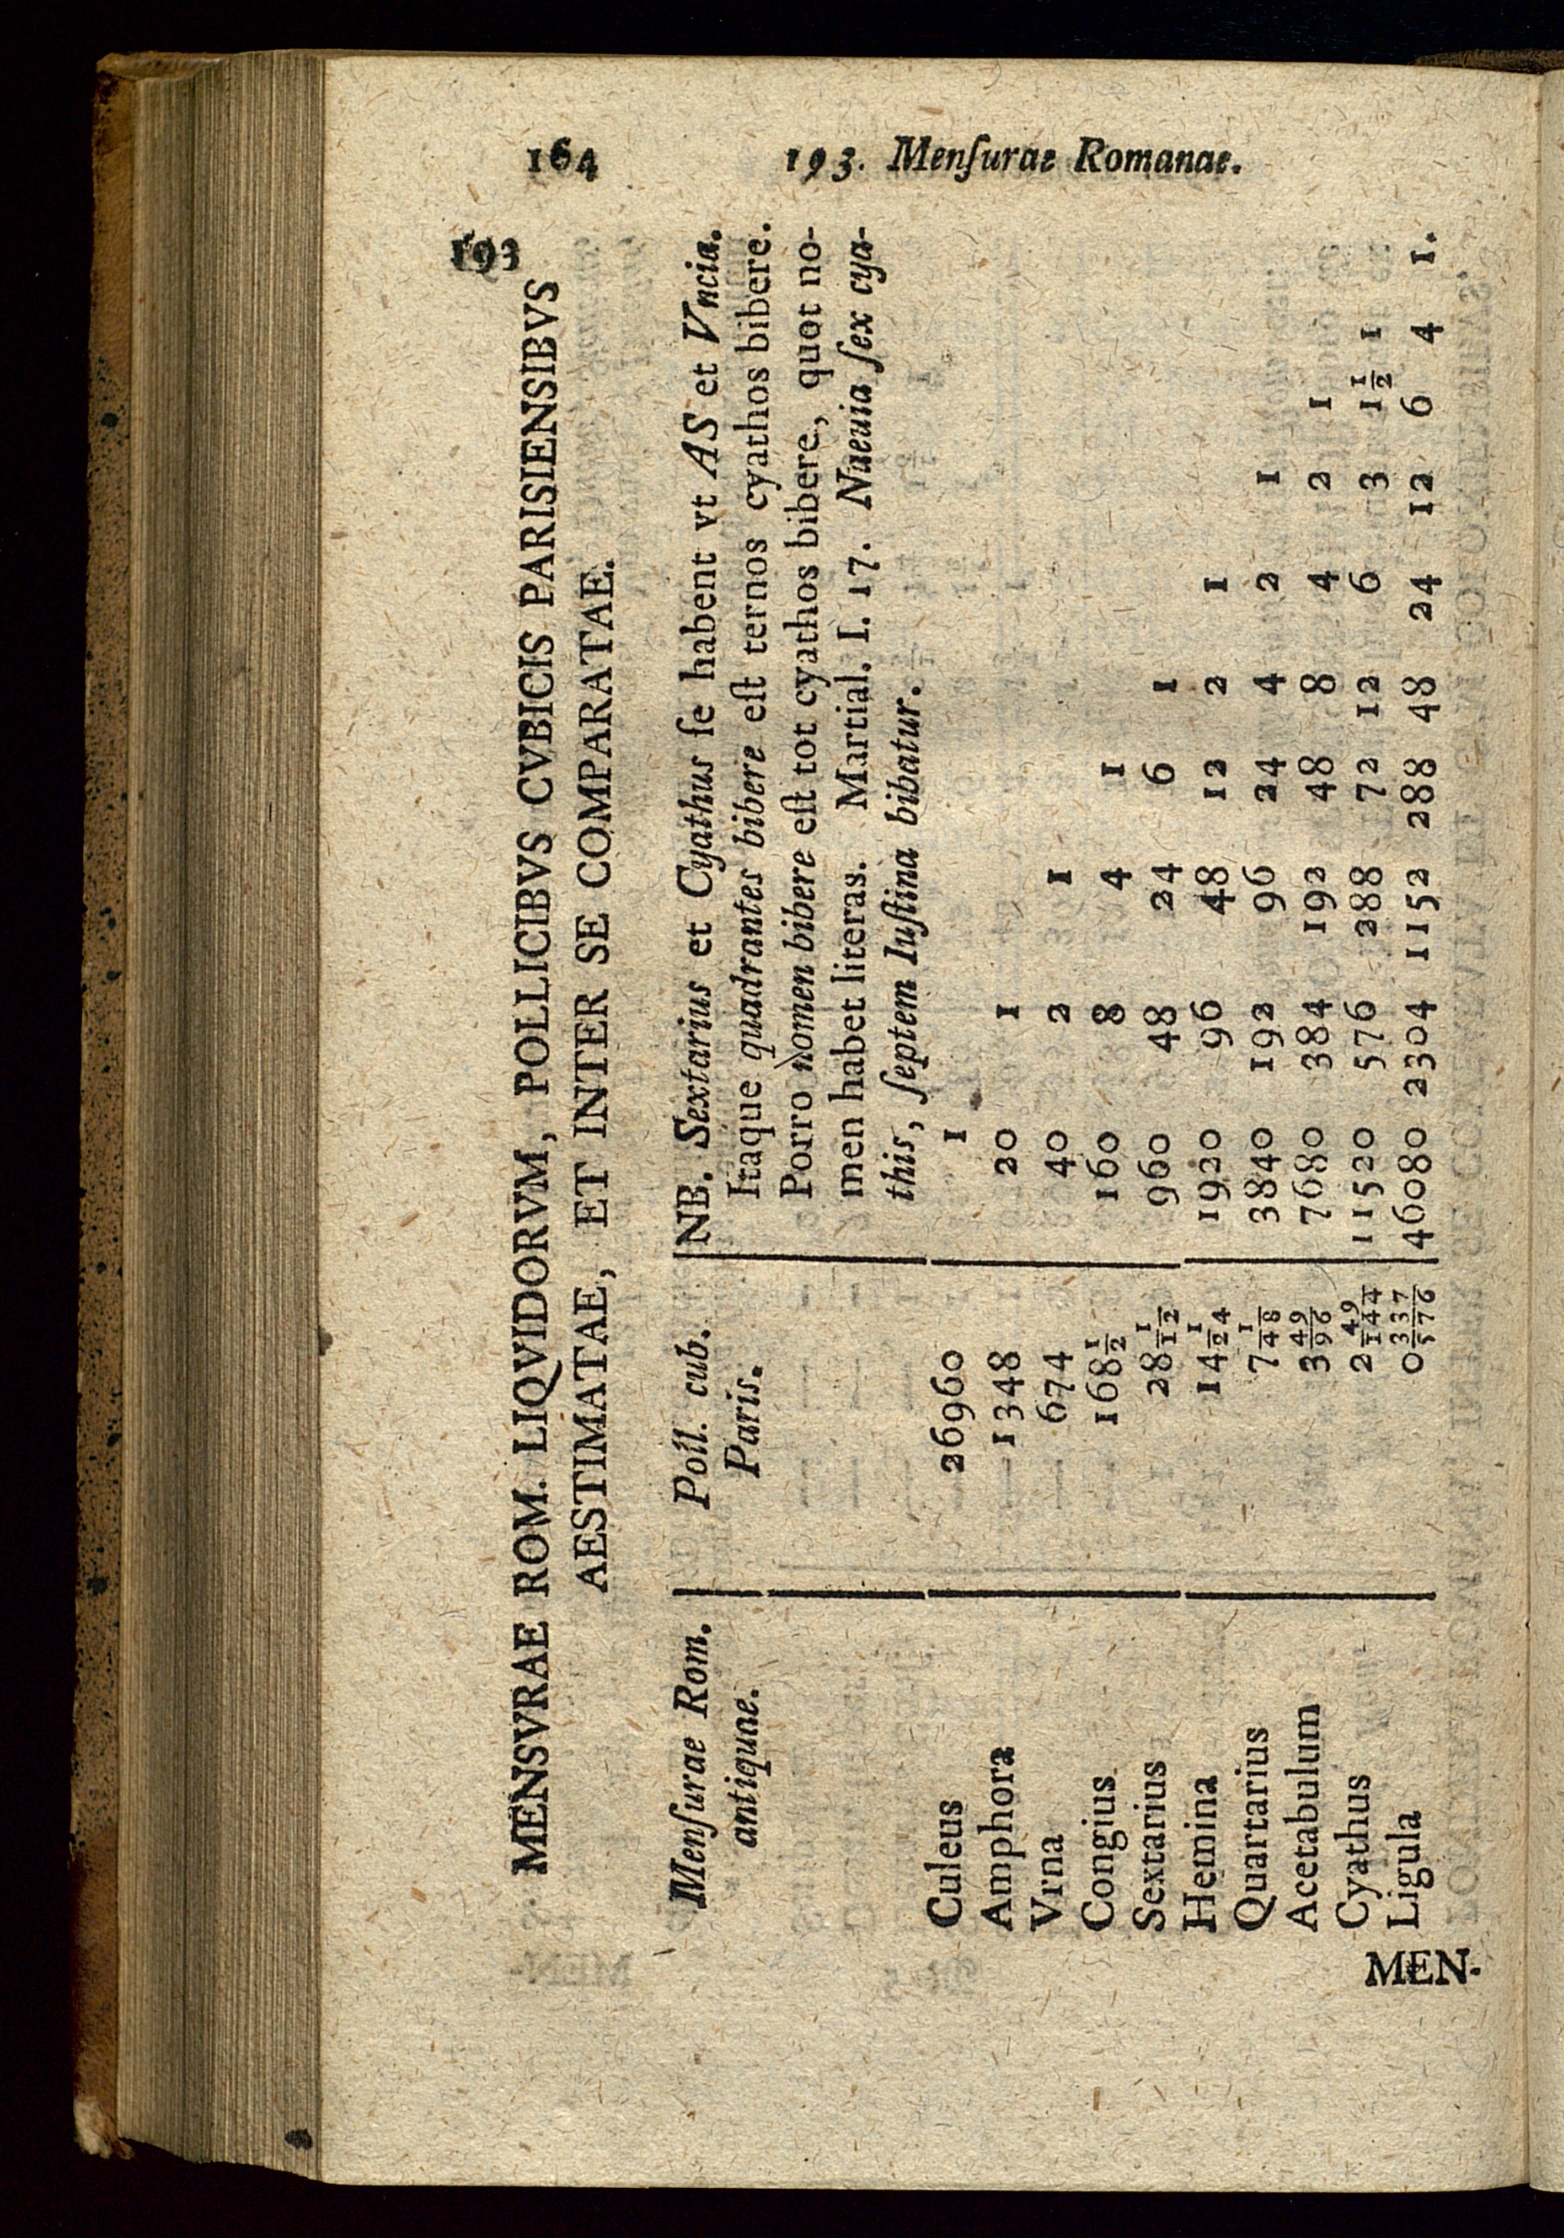 164 193. Menſurae Romanae.
193
MENSVRAE ROM. LIQVIDORVM, POLLICIBVS CVBICIS PARISIENSIBVS
AESTIMATAE, ET INTER SE COMPARATAE.
Menſurae Rom. antiquae.
Poll. cub. Paris.
NB. Sextarius et Cyathus ſe habent vt AS et Vncia.
Itaque quadrantes bibere eſt ternos cyathos bibere.
Porro nomen bibere eſt tot cyathos bibere, quot no-
men habet literas. Martial. I. 17. Naeuia ſex cya-
this, ſeptem Iuſtina bibatur.
Culeus 26960 1
Amphora 1348 20 1
Vrna 674 40 2 1
Congius 168 1/2 160 8 4 1
Sextarius 28 1/12 960 48 24 6 1
Hemina 14 1/24 1920 96 48 12 2 1
Quartarius 7 1/48 3840 192 96 24 4 2 1
Acetabulum 3 49/96 7680 384 192 48 8 4 2 1
Cyathus 2 49/144 11520 576 288 72 12 6 3 1 1/2 1
Ligula 0 337/576 46080 2304 1152 288 48 24 12 6 4 1.
MEN-